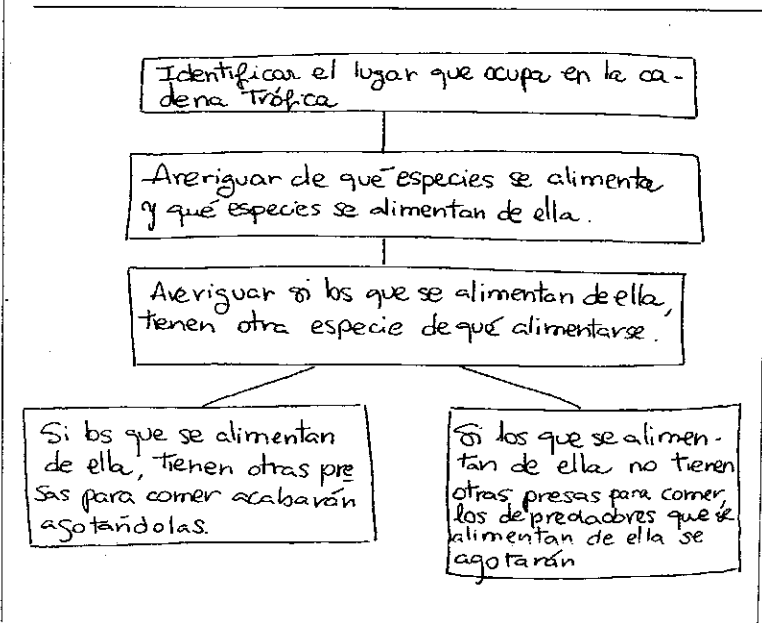 Identificar el lugar que ocupa en la ca-
dena Trófica
Averiguar de qué especies se alimenta
y qué especies se alimentan de ella.
Averiguar si los que se alimentan de ella,
tienen otra especie de qué alimentarse.
Si los que se alimentan
de ella, tienen otras pre
sas para comer acabarán
agotándolas.
Si los que se alimen-
tan de ella no tienen
otras presas para comer,
los depredadores que se
alimentan de ella se
agotarán